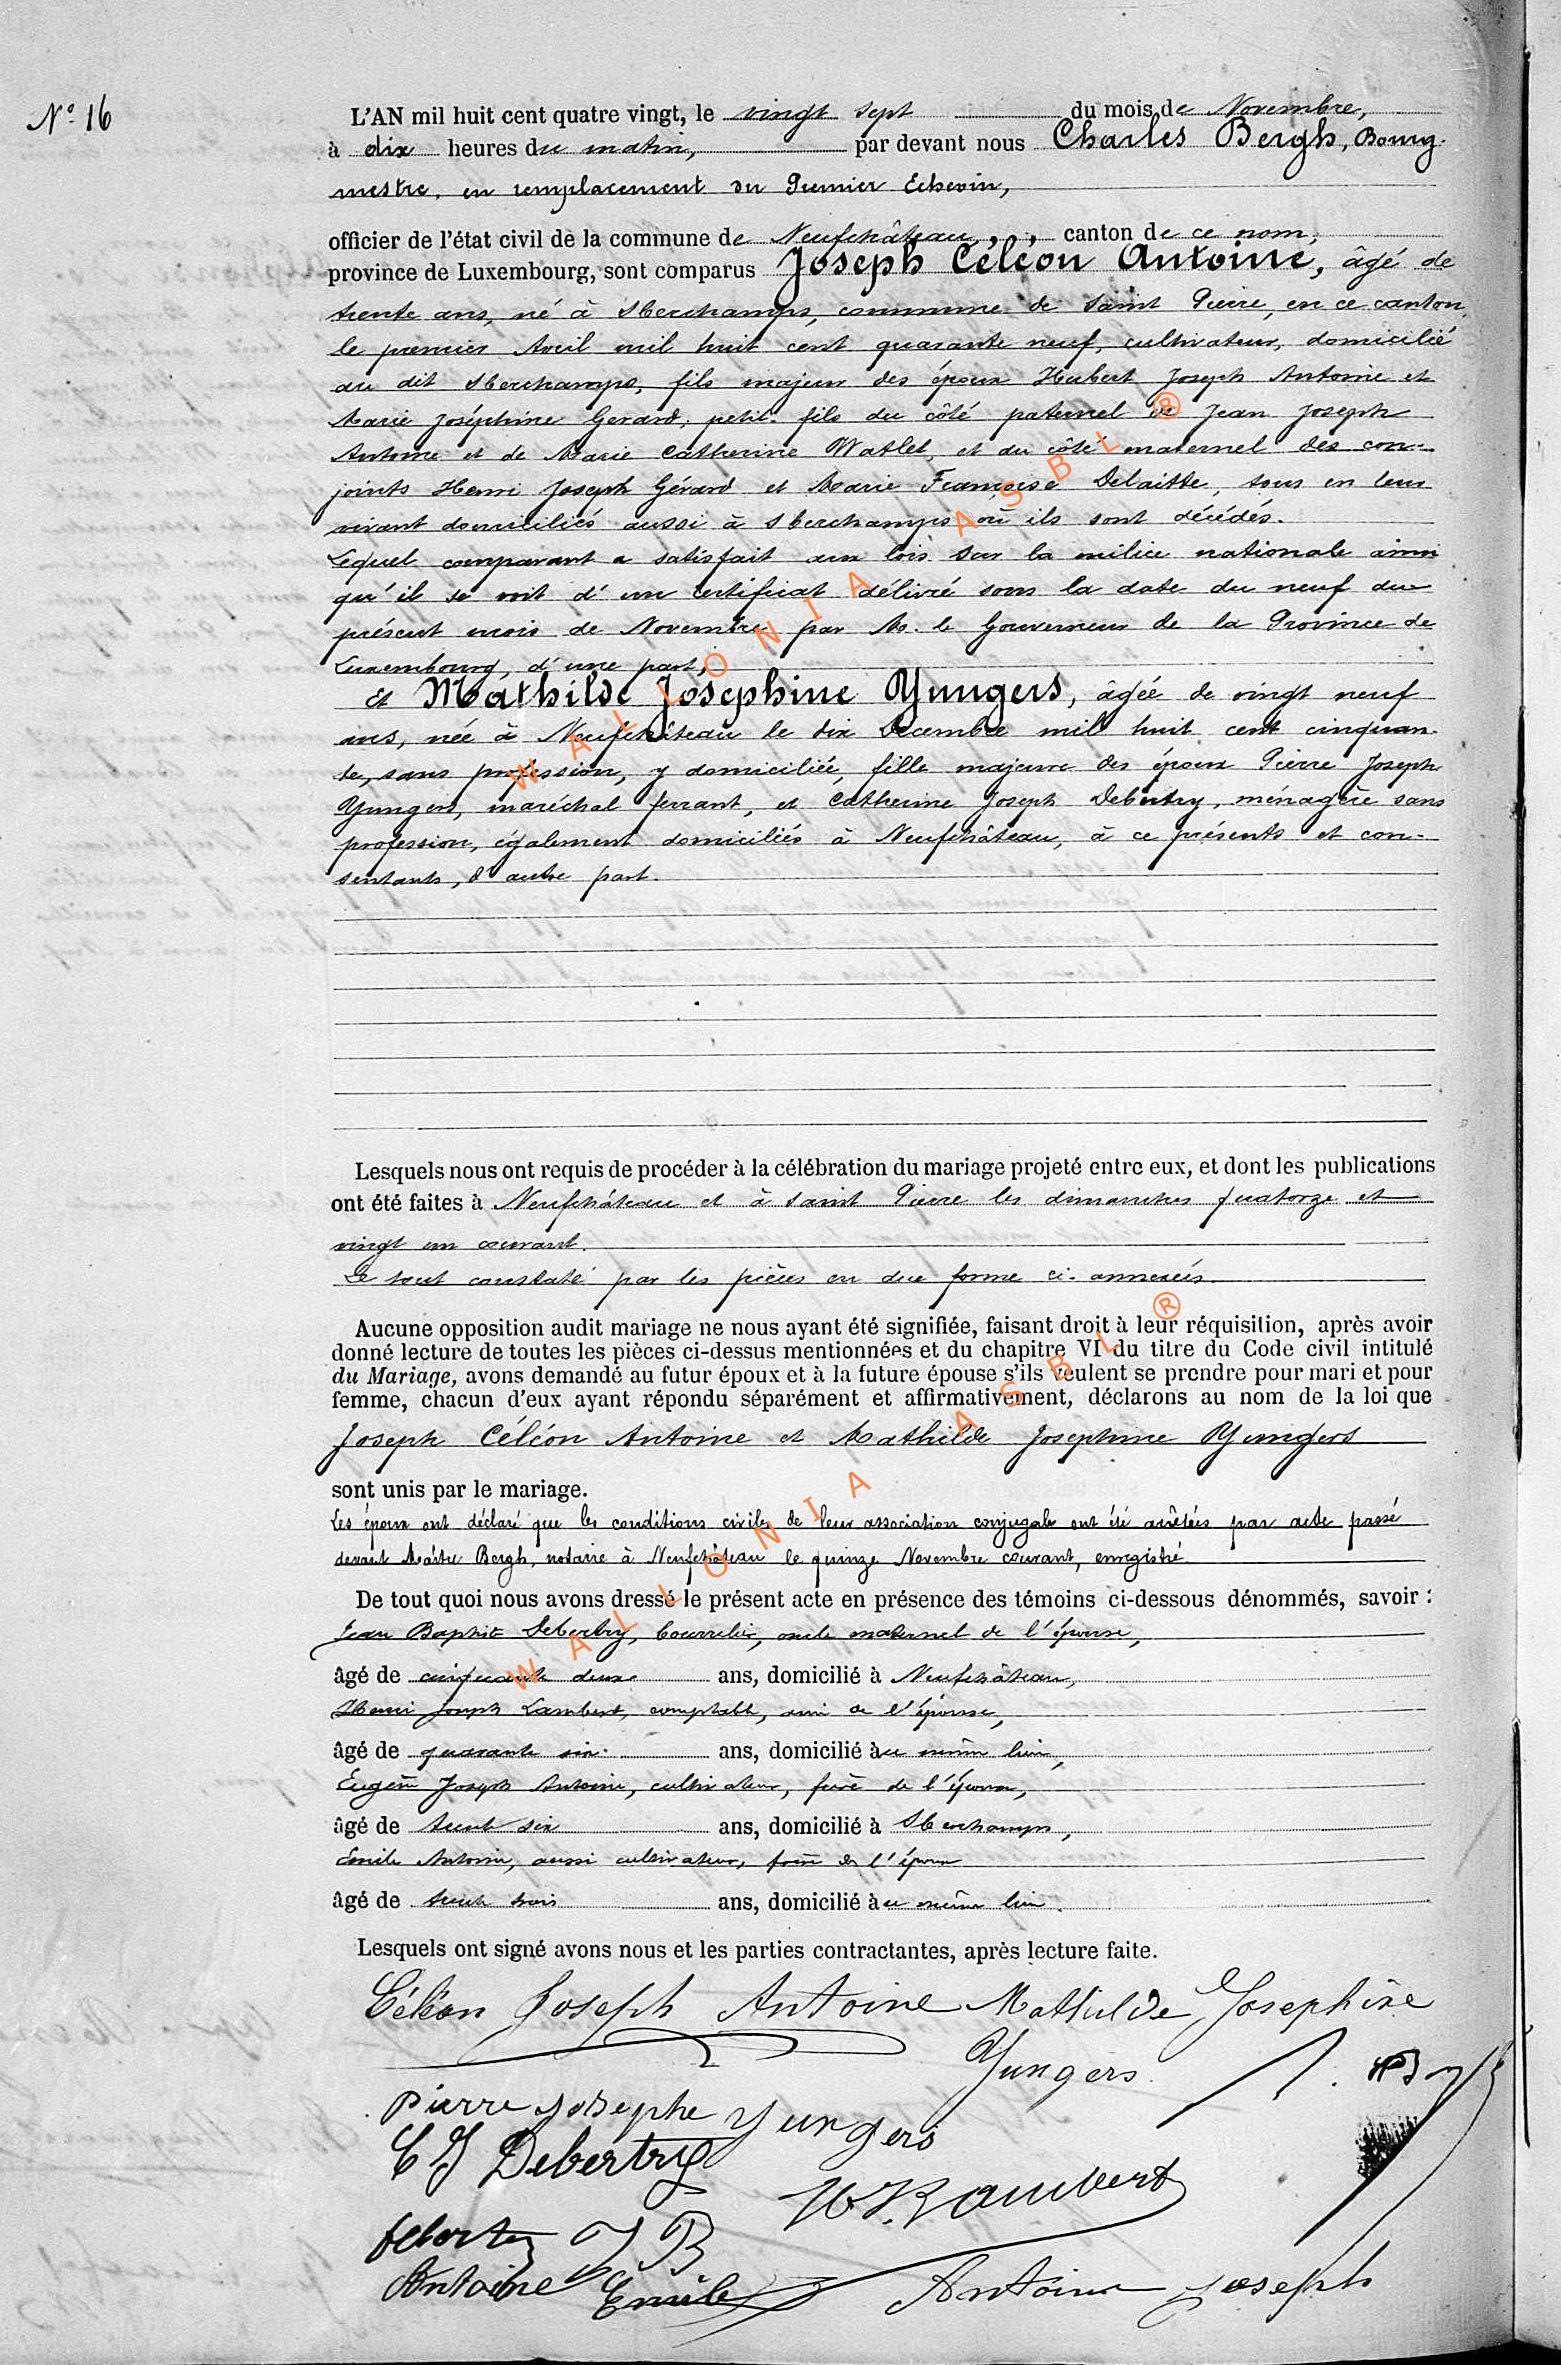 Nº 16
L'AN mil huit cent quatre vingt, le vingt sept du mois de Novembre,
à dix heures du matin, par devant nous Charles Bergh, Bourg-
mestre, en remplacement du Premier Echevin,
officier de l'état civil de la commune de Neufchâteau, canton de ce nom,
province de Luxembourg, sont comparus Joseph Céléon Antoine, âgé de
trente ans, né à Sberchamps, commune de Saint Pierre, en ce canton,
le premier Avril mil huit cent quarante neuf, cultivateur, domicilié
au dit Sberchamps, fils majeur des époux Hubert Joseph Antoine et
Marie Joséphine Gerard, petit-fils du côté paternel de Jean Joseph
Antoine et de Marie Catherine Watlet, et du côté maternel des con-
joints Henri Joseph Gérard et Marie Françoise Delaitte, tous en leur
vivant domiciliés aussi à Sberchamps où ils sont décédés.
Lequel comparant a satisfait aux lois sur la milice nationale ainsi
qu'il se voit d'un certificat délivré sous la date du neuf du
présent mois de Novembre par M. le Gouverneur de la Province de
Luxembourg, d'une part,
et Mathilde Josephine Yungers, âgée de vingt neuf
ans, née à Neufchâteau le dix Decembre mil huit cent cinquan-
te, sans profession, y domiciliée, fille majeure des époux Pierre Joseph
Yungers, maréchal ferrant, et Catherine Joseph Debertry, ménagère sans
profession, également domiciliés à Neufchâteau, à ce présents et con-
sentants, d'autre part.
Lesquels nous ont requis de procéder à la célébration du mariage projeté entre eux, et dont les publications
ont été faites à Neufchâteau et à Saint Pierre les dimanches quatorze et
vingt un courant.
Le tout constaté par les pièces en due forme ci-annexées.
Aucune opposition audit mariage ne nous ayant été signifiée, faisant droit à leur réquisition, après avoir
donné lecture de toutes les pièces ci-dessus mentionnées et du chapitre VI du titre du Code civil intitulé
du Mariage, avons demandé au futur époux et à la future épouse s'ils veulent se prendre pour mari et pour
femme, chacun d'eux ayant répondu séparément et affirmativement, déclarons au nom de la loi que
Joseph Céléon Antoine et Mathilde Josephine Yungers
sont unis par le mariage.
Les époux ont déclaré que les conditions civiles de leur association conjugale ont été arrêtées par acte passé
devant Maître Bergh, notaire à Neufchâteau le quinze Novembre courant, enregistré.
De tout quoi nous avons dressé le présent acte en présence des témoins ci-dessous dénommés, savoir :
Jean Baptiste Debertry, bourrelier, oncle maternel de l'épouse,
âgé de cinquante deux ans, domicilié à Neufchâteau,
Henri Joseph Lambert, comptable, ami de l'épouse,
âgé de quarante six ans, domicilié au même lieu,
Eugène Joseph Antoine, cultivateur, frère de l'époux,
âgé de trente six ans, domicilié à Sberchamps,
Emile Antoine, aussi cultivateur, frère de l'époux
âgé de trente trois ans, domicilié au même lieu.
Lesquels ont signé avons nous et les parties contractantes, après lecture faite.
Céléon Joseph Antoine Mathilde Josephine
Yungers
Pierre Josephe Yungers
C J Debertry
H. J. Lambert
Debertry J B
Antoine Emile
Antoine Joseph
WALLONIA ASBL ®
WALLONIA ASBL ®